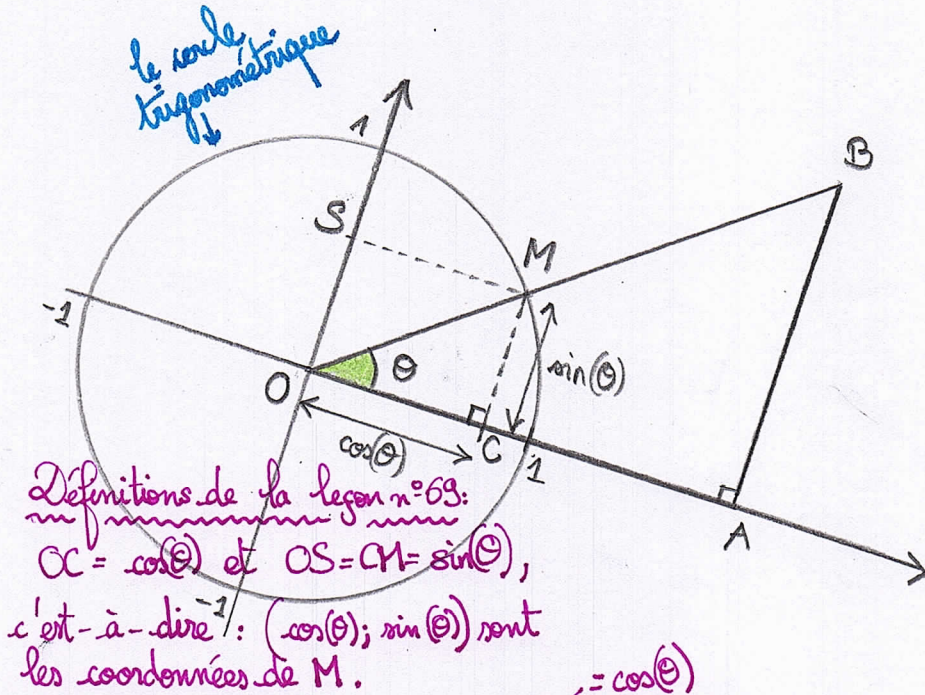 le cercle
trigonométrique
1
B
S
M
-1
θ
sin(θ)
O
cos(θ)
C
1
A
Définitions de la leçon n°69:
OC = cos(θ) et OS = CM = sin(θ),
-1
c'est-à-dire : (cos(θ); sin(θ)) sont
les coordonnées de M.
= cos(θ)